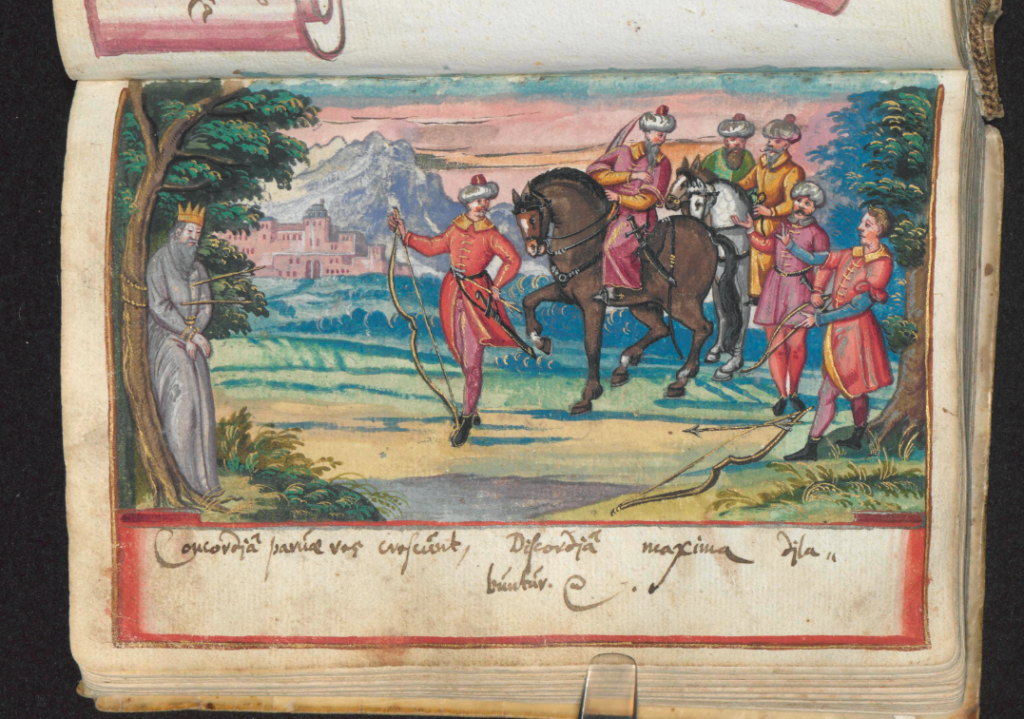 Concordjâ paruæ res crescunt, Discordjâ maxima djla„
buntur.